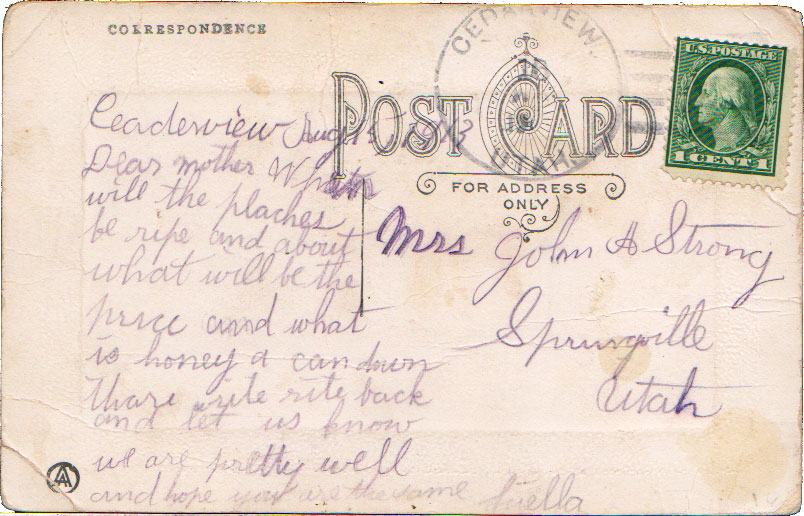 CORRESPONDENCE
CEDARVIEW.
UTAH
U.S. POSTAGE
1 CENT 1
POST CARD
FOR ADDRESS
ONLY
Ceaderview Aug
Dear mother
will the plaches
be ripe and about
what will be the
price and what
is honey a can down
thare rite rite back
and let us know
we are pretty well
and hope you are the same Luella
Mrs John A Strong
Springville
Utah